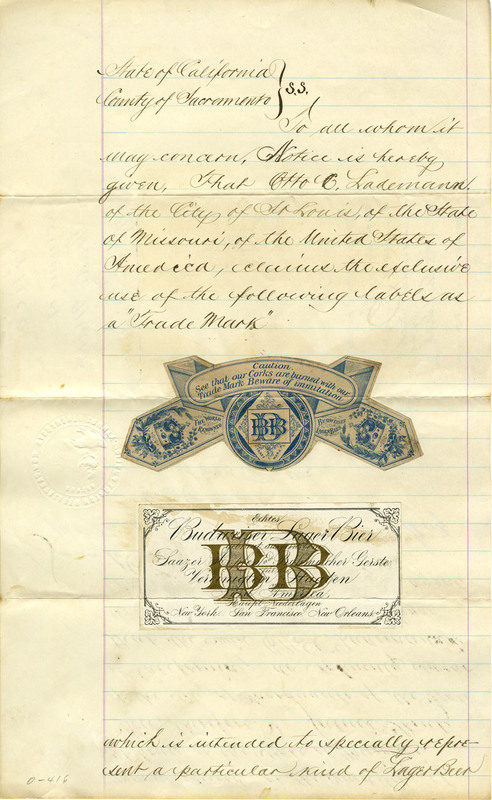 State of California } S.S.
County of Sacramento
To all whom it
may concern, Notice is hereby
given, That Otto C. Lademann,
of the City of St Louis, of the State
of Missouri, of the United States of
America, claims the exclusive
use of the following labels as
a "Trade Mark"
Caution.
See that our Corks are burned with our
Trade Mark Beware of immitation
The World
Renowned
BBB
Budweiser
Lager Bier
Echtes
Budweiser Lager Bier
Saazer Gerste
Vereinigten Staaten
America
Haupt Niederlagen
New York San Francisco New Orleans
BB
which is intended to specially repre-
sent a particular kind of Lager Beer
O-416